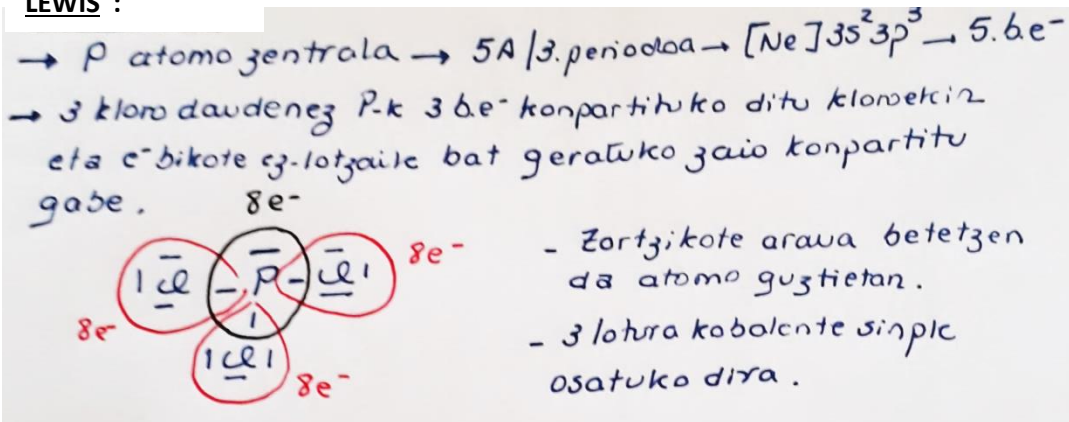 LEWIS :
→ P atomo zentrala → 5A/3. periodoa → [Ne] 3s² 3p³ → 5. b.e⁻
→ 3 kloro daudenez P-k 3 b.e⁻ konpartituko ditu kloroekin
eta e⁻ bikote ez-lotzaile bat geratuko zaio konpartitu
gabe.
8e⁻
8e⁻
|Cl - P - Cl|
8e⁻
|Cl|
8e⁻
- Zortzikote araua betetzen
da atomo guztietan.
- 3 lotura kobalente sinple
osatuko dira.